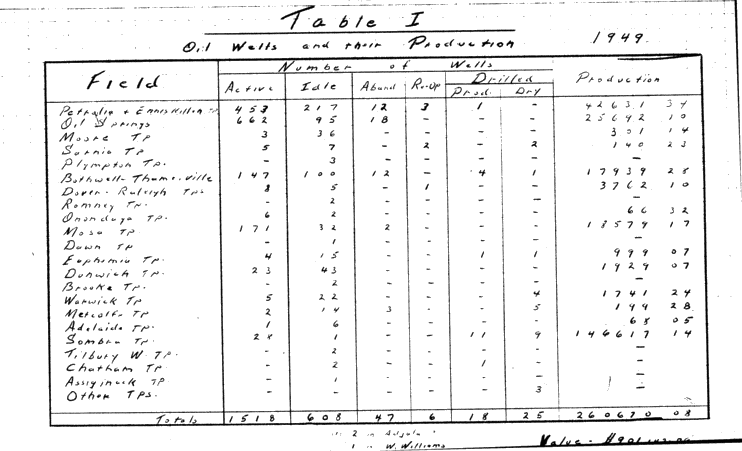 Table I
Oil Wells and their Production 1949
Field Number of Wells Production
Active Idle Aband Re-Op Drilled
Prod. Dry
Petrolia + Enniskillen Tp. 453 217 12 3 1 - 42631 34
Oil Springs 662 95 18 - - - 25692 10
Moore Tp 3 36 - - - - 301 14
Sarnia Tp 5 7 - 2 - 2 140 23
Plympton Tp. - 3 - - - - -
Bothwell-Thamesville 147 100 12 - 4 1 17939 25
Dover-Raleigh Tps 8 5 - 1 - - 3762 10
Romney Tp. - 2 - - - - -
Onondaga Tp. 6 2 - - - - 66 32
Mosa Tp. 171 32 2 - - - 18579 17
Dawn Tp - 1 - - - - -
Euphemia Tp. 4 15 - - 1 1 999 07
Dunwich Tp. 23 43 - - - - 1929 07
Brooke Tp. - 2 - - - - -
Warwick Tp 5 22 - - - 4 1741 24
Metcalfe Tp 2 14 3 - - 5 199 28
Adelaide Tp. 1 6 - - - - 68 05
Sombra Tp. 28 1 - - 11 9 146617 14
Tilbury W. Tp. - 2 - - - - -
Chatham Tp. - 2 - - 1 - -
Assiginack Tp. - 1 - - - - -
Other Tps. - - - - - 3 -
Totals 1518 608 47 6 18 25 260670 08
2 in Adjala
1 in W. Williams
Value -